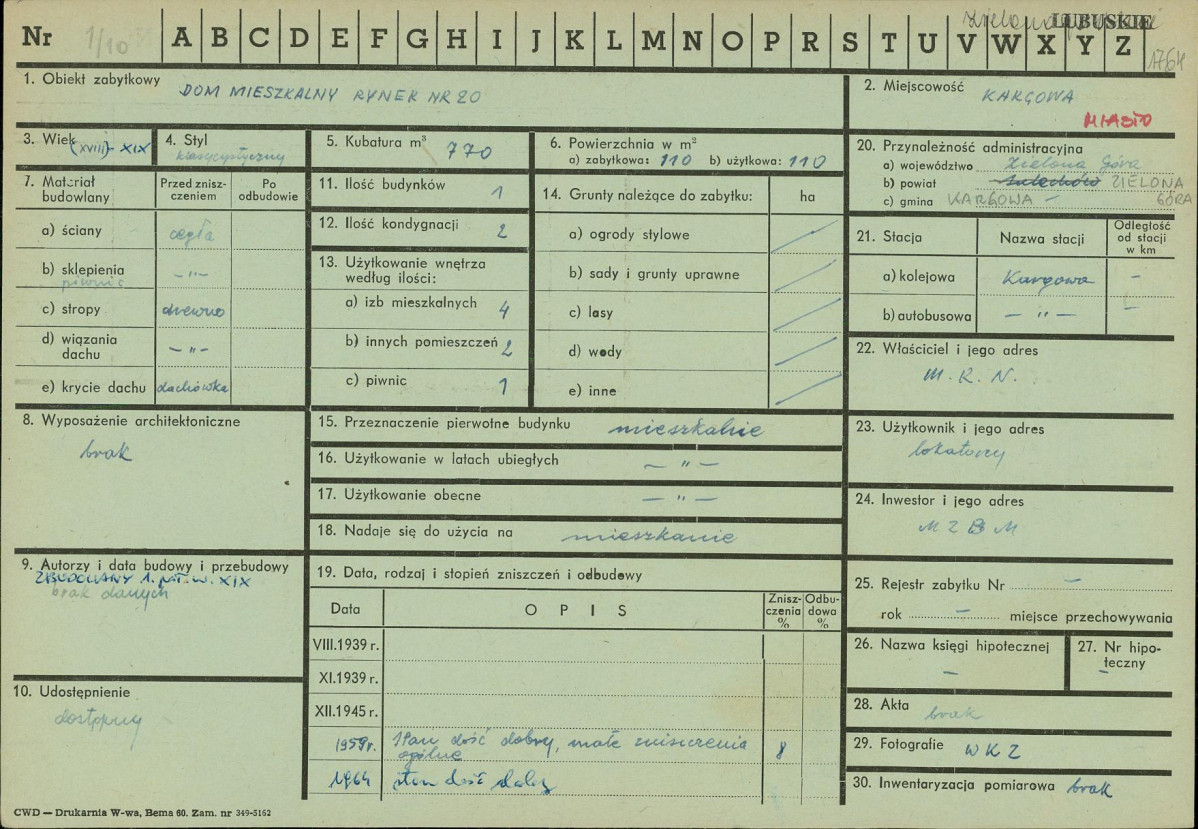 LUBUSKIE
Nr 1/10 A B C D E F G H I J K L M N O P R S T U V W X Y Z
1764
1. Obiekt zabytkowy DOM MIESZKALNY RYNEK NR 20
2. Miejscowość KARGOWA
MIASTO
3. Wiek (XVIII) - XIX
4. Styl klasycystyczny
5. Kubatura m³ 770
6. Powierzchnia w m²
a) zabytkowa: 110 b) użytkowa: 110
20. Przynależność administracyjna
a) województwo Zielona Góra
b) powiat Sulechów ZIELONA
c) gmina KARGOWA - GÓRA
7. Materiał budowlany
Przed zniszczeniem
Po odbudowie
a) ściany cegła
b) sklepienia -"-
piwnic
c) stropy drewno
d) wiązania dachu -"-
e) krycie dachu dachówka
11. Ilość budynków 1
12. Ilość kondygnacji 2
13. Użytkowanie wnętrza
według ilości:
a) izb mieszkalnych 4
b) innych pomieszczeń 2
c) piwnic 1
14. Grunty należące do zabytku: ha
a) ogrody stylowe
b) sady i grunty uprawne
c) lasy
d) wody
e) inne
21. Stacja
Nazwa stacji
Odległość
od stacji
w km
a) kolejowa Kargowa -
b) autobusowa - " - -
22. Właściciel i jego adres
M. R. N.
8. Wyposażenie architektoniczne
brak
15. Przeznaczenie pierwotne budynku mieszkalnie
16. Użytkowanie w latach ubiegłych - " -
17. Użytkowanie obecne - " -
18. Nadaje się do użycia na mieszkanie
23. Użytkownik i jego adres
lokatorzy
24. Inwestor i jego adres
M Z B M
9. Autorzy i data budowy i przebudowy
ZBUDOWANY 1. POŁ. W. XIX
brak danych
10. Udostępnienie
dostępny
19. Data, rodzaj i stopień zniszczeń i odbudowy
Data
OPIS
Zniszczenia
%
Odbudowa
%
VIII.1939 r.
XI.1939 r.
XII.1945 r.
1959r. Stan dość dobry, małe zniszczenia 8
ogólne
1964 stan dość dobry
25. Rejestr zabytku Nr -
rok - miejsce przechowywania
26. Nazwa księgi hipotecznej
-
27. Nr hipoteczny
-
28. Akta brak
29. Fotografie W K Z
30. Inwentaryzacja pomiarowa brak
CWD — Drukarnia W-wa, Bema 60. Zam. nr 349-5162